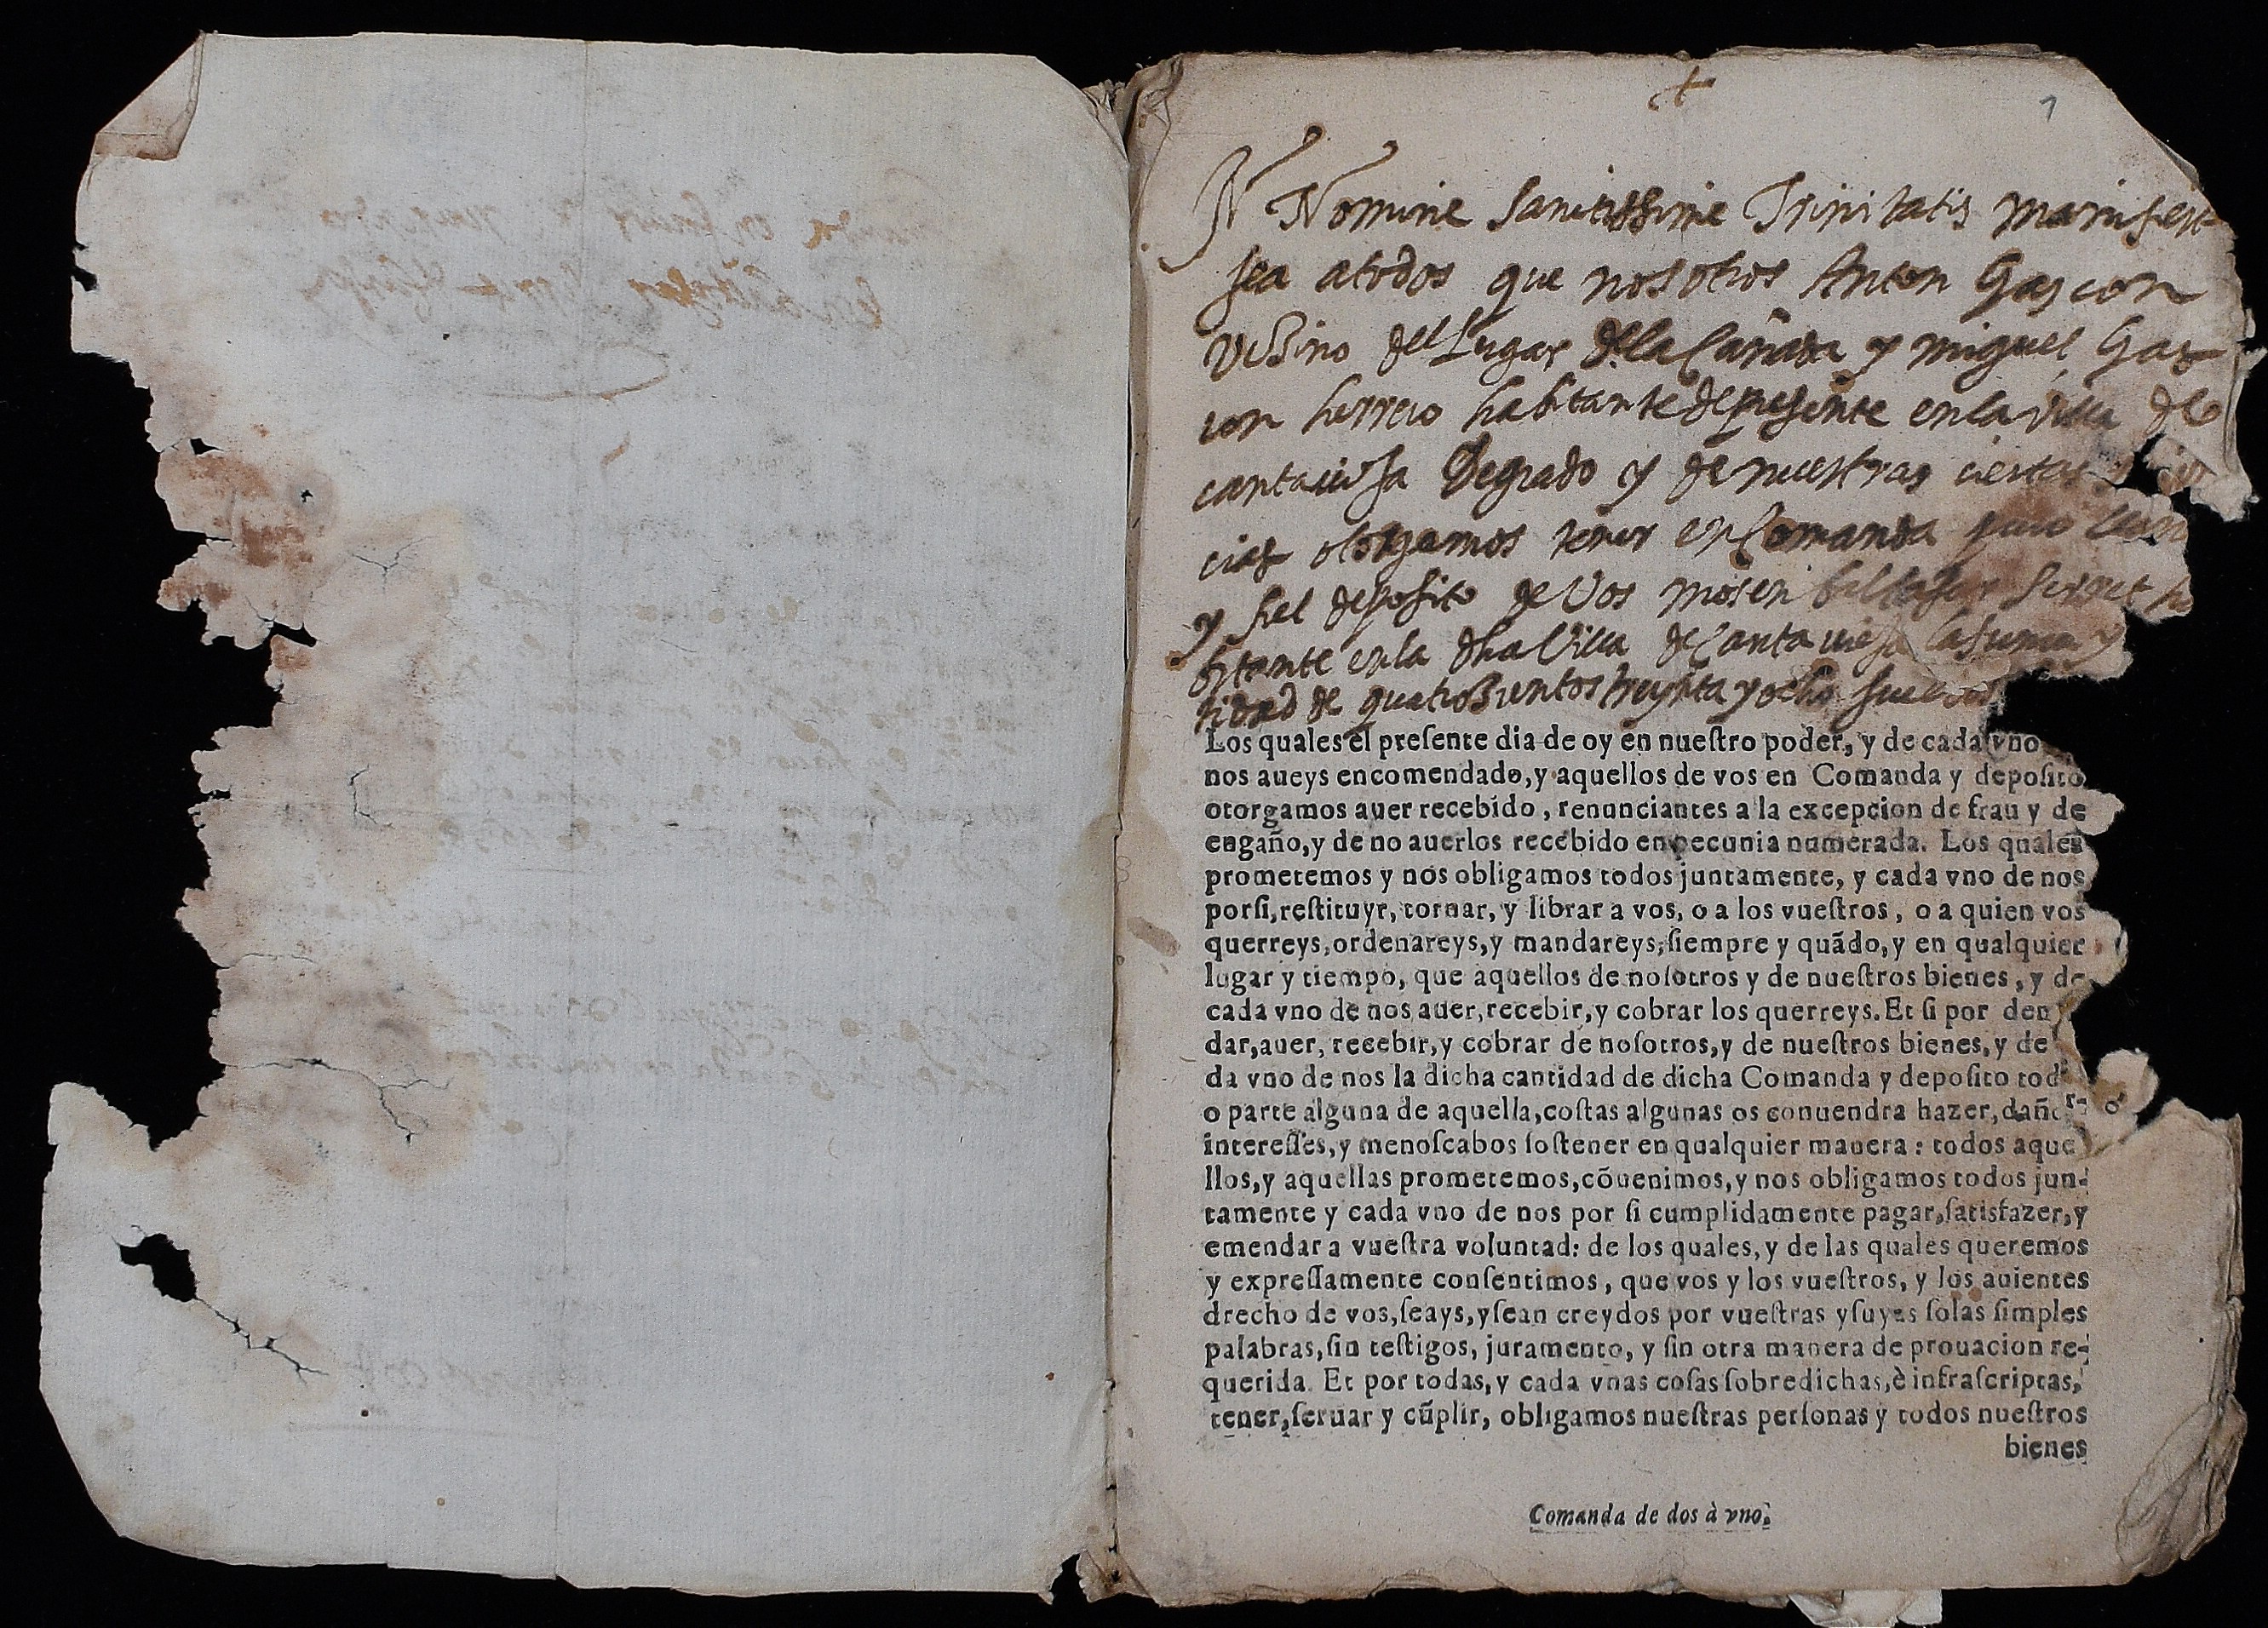 1
IN Nomine Sanctissime Trinitatis manifest
sea atodos que nosotros Anton Gascon
vezino del Lugar dela Cañada y miguel Gas
con herrero habitante de presente en la villa de
cantavieja Degrado y de nuestras ciertas
cias otorgamos tener en Comanda puro
y fiel deposito de Vos mosen baltasar ha
bitante en la dha Villa de Cantavieja la suma y
tidad de quatrozientos treynta y ocho sueldos
Los quales el preſente dia de oy en nueſtro poder, y de cada vno
nos aueys encomendado, y aquellos de vos en Comanda y depoſito
otorgamos auer recebido, renunciantes a la excepcion de frau y de
engaño, y de no auerlos recebido en pecunia numerada. Los quales
prometemos y nos obligamos todos juntamente, y cada vno de nos
porſi, reſtituyr, tornar, y librar a vos, o a los vueſtros, o a quien vos
querreys, ordenareys, y mandareys, ſiempre y quãdo, y en qualquier
lugar y tiempo, que aquellos de noſotros y de nueſtros bienes, y de
cada vno de nos auer, recebir, y cobrar los querreys. Et ſi por dem
dar, auer, recebir, y cobrar de noſotros, y de nueſtros bienes, y de
da vno de nos la dicha cantidad de dicha Comanda y depoſito tod
o parte alguna de aquella, coſtas algunas os conuendra hazer, daños
intereſſes, y menoſcabos ſoſtener en qualquier manera: todos aque
llos, y aquellas prometemos, cõuenimos, y nos obligamos todos jun-
tamente y cada vno de nos por ſi cumplidamente pagar, ſatisfazer, y
emendar a vueſtra voluntad: de los quales, y de las quales queremos
y expreſſamente conſentimos, que vos y los vueſtros, y los auientes
drecho de vos, ſeays, y ſean creydos por vueſtras y ſuyas ſolas ſimples
palabras, ſin teſtigos, juramento, y ſin otra manera de prouacion re-
querida. Et por todas, y cada vnas coſas ſobredichas, è infraſcriptas,
tener, ſeruar y cũplir, obligamos nueſtras perſonas y todos nueſtros
bienes
Comanda de dos à vno.